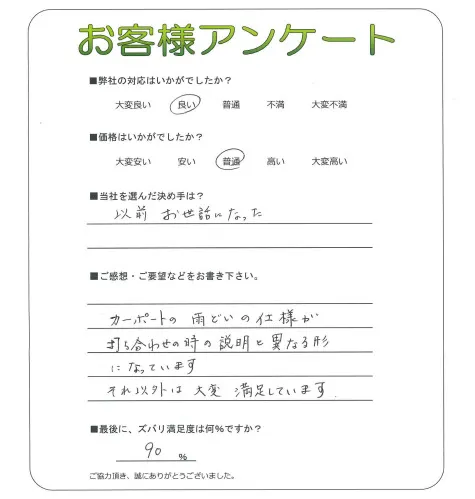 お客様アンケート
■弊社の対応はいかがでしたか？
大変良い 良い 普通 不満 大変不満
■価格はいかがでしたか？
大変安い 安い 普通 高い 大変高い
■当社を選んだ決め手は？
以前 お世話になった
■ご感想・ご要望などをお書き下さい。
カーポートの 雨どいの仕様が
打ち合わせの時の説明と異なる形
になっています
それ以外は 大変 満足しています
■最後に、ズバリ満足度は何％ですか？
90 ％
ご協力頂き、誠にありがとうございました。